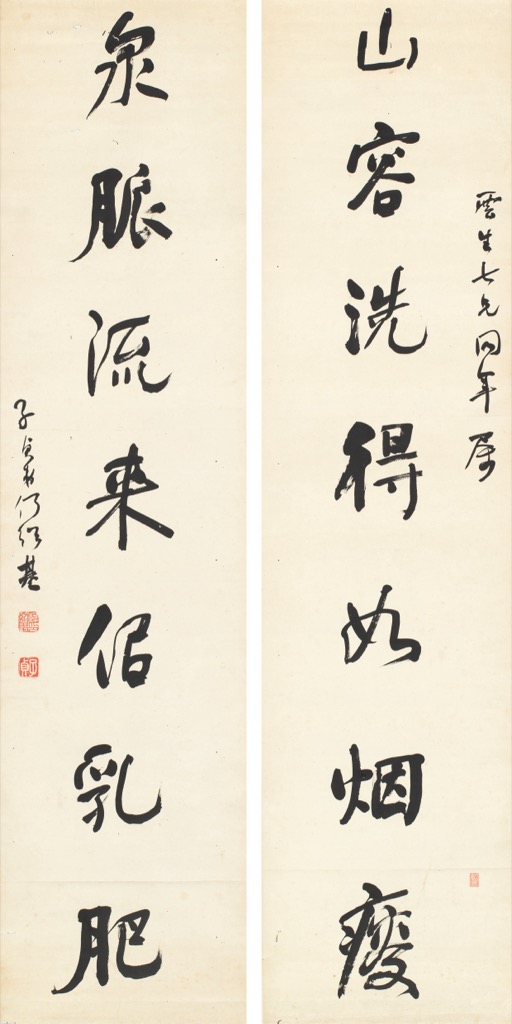 山容洗得如烟瘦
雲生七兄同年属
泉脈流来佀乳肥
子貞弟何紹基
子貞